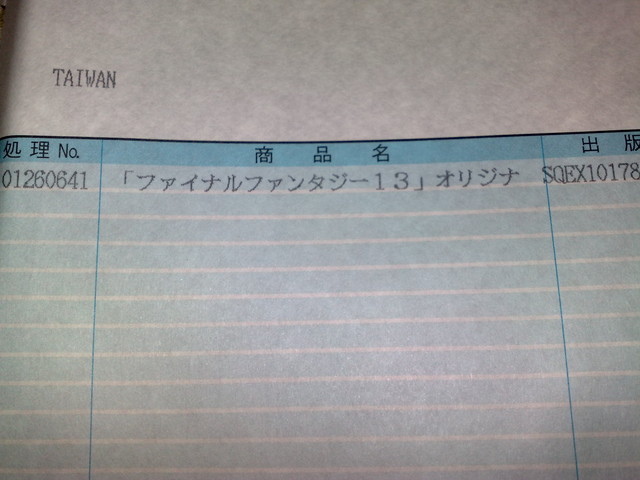 TAIWAN
処理 No. 商品名 出版
01260641 「ファイナルファンタジー１３」オリジナ SQEX10178